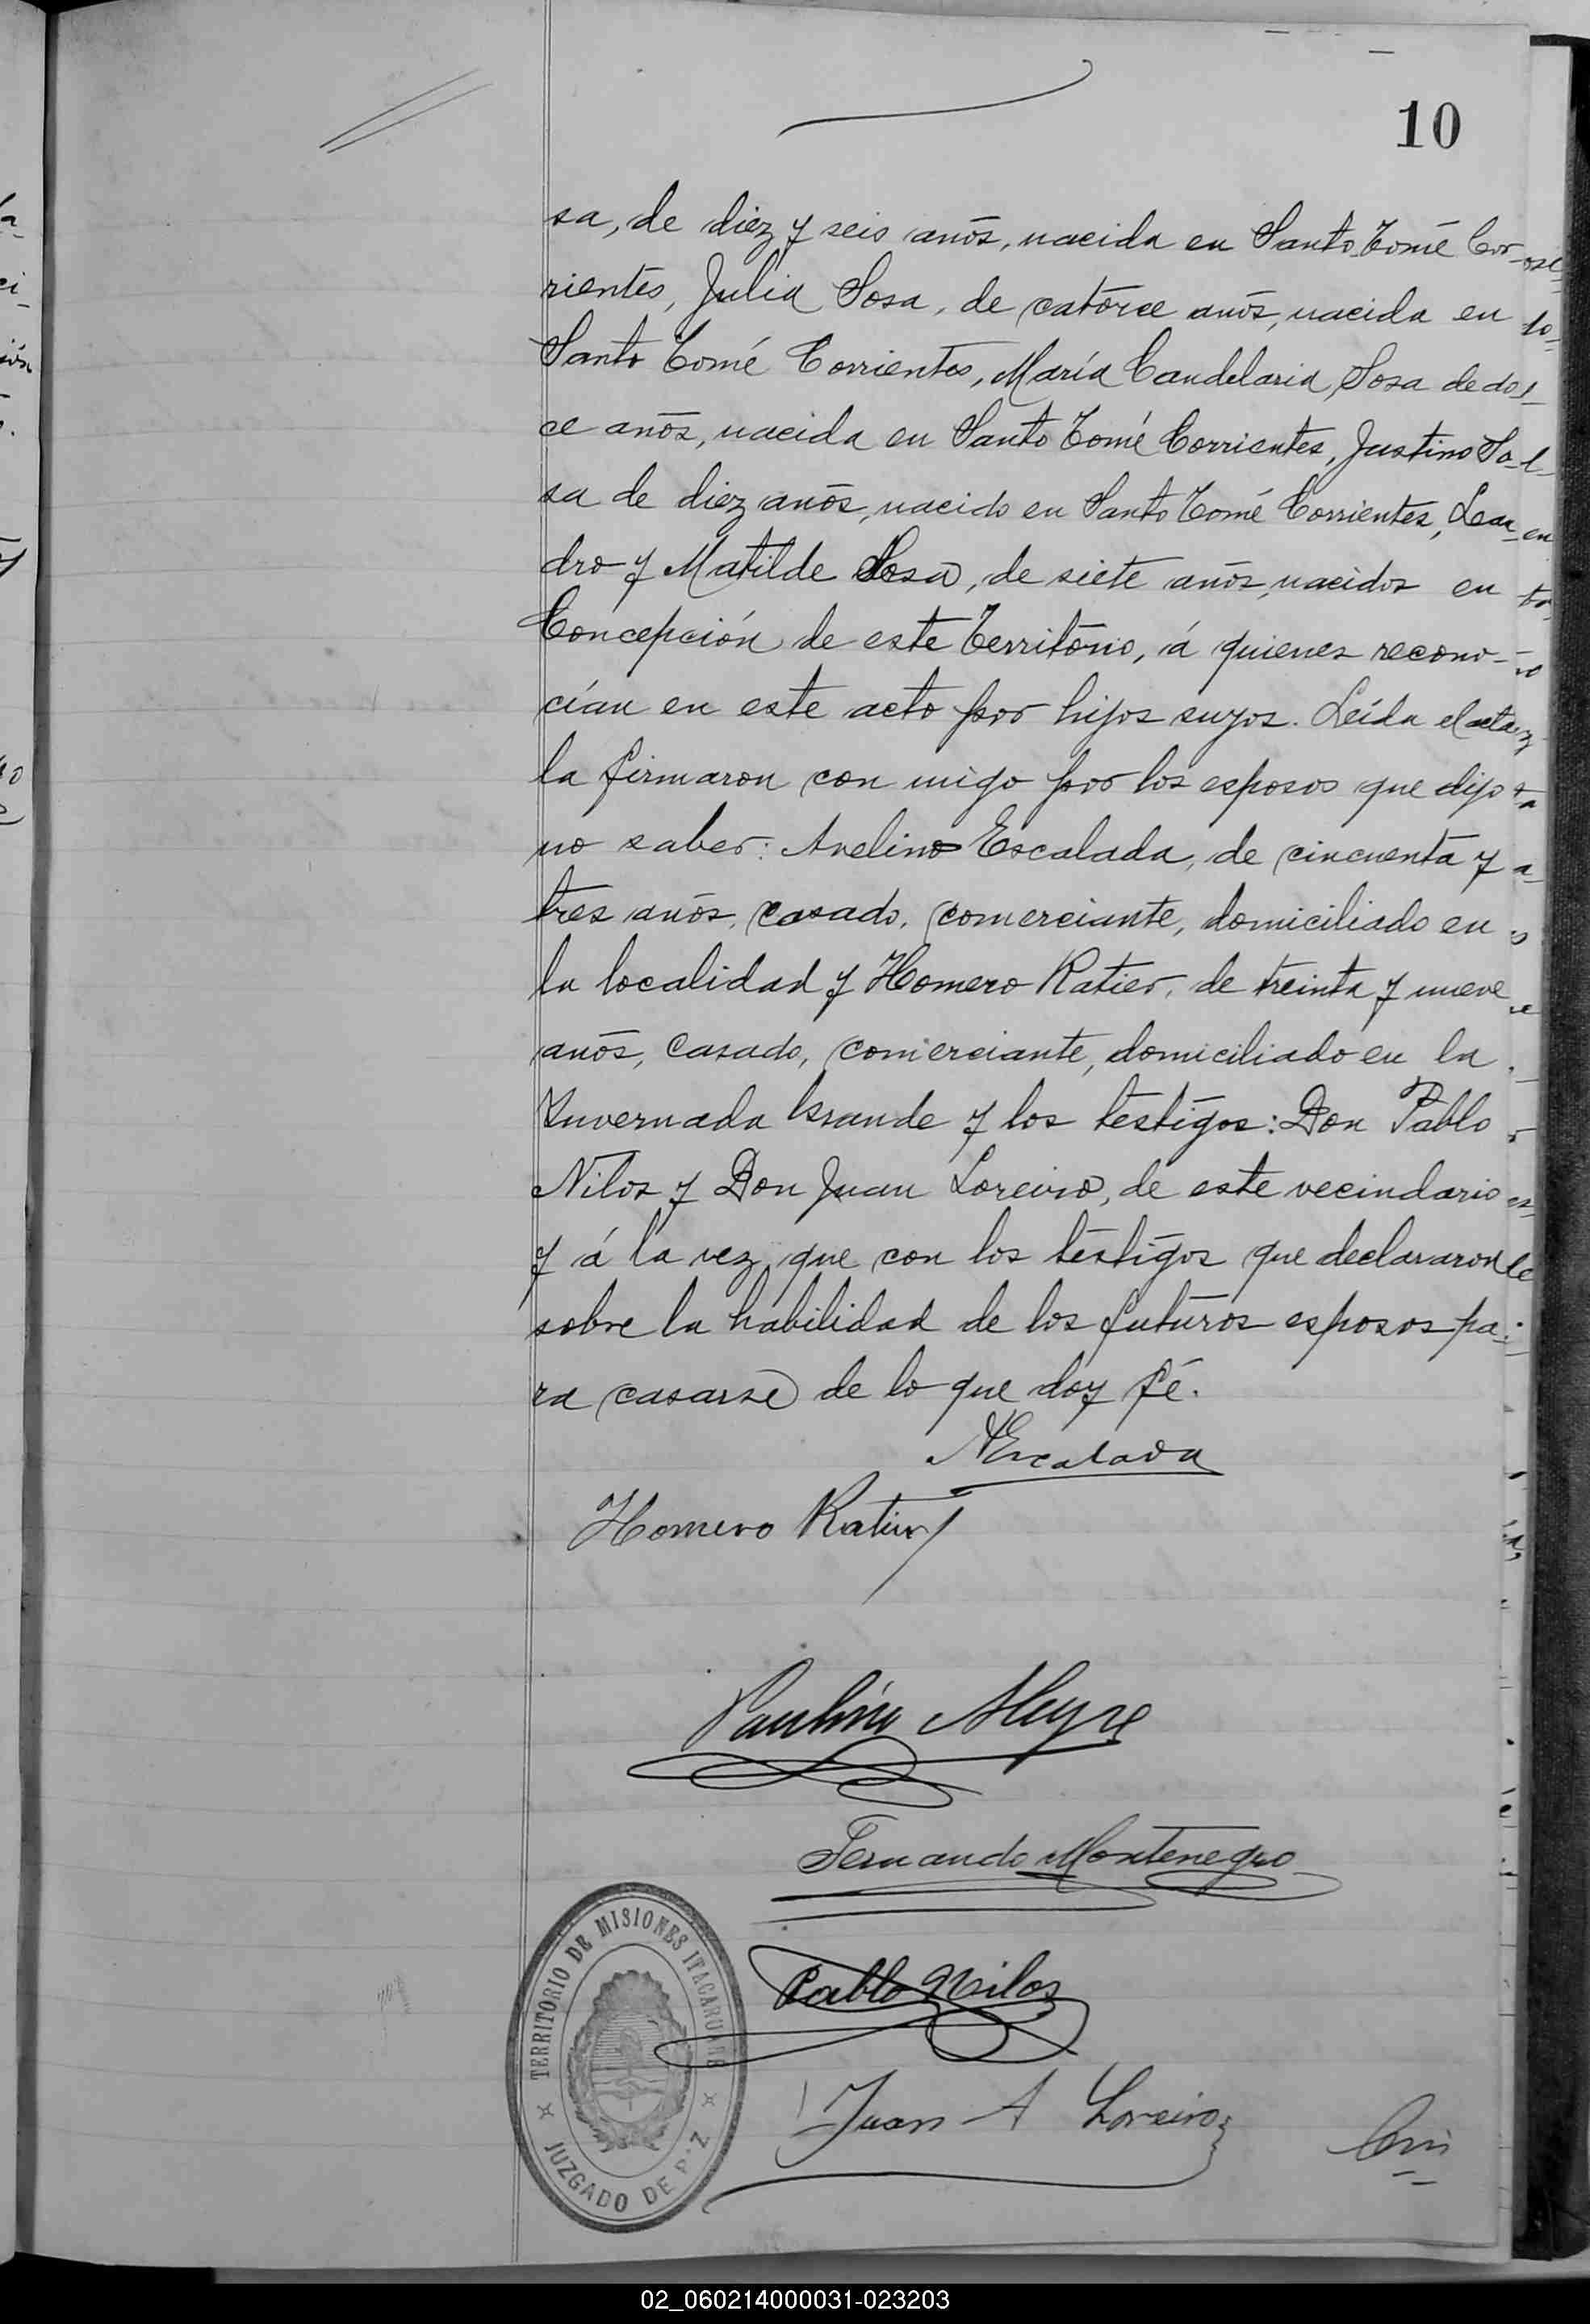 10
sa, de diez y seis años, nacida en Santo Tomé Cor-
rientes, Julia Sosa, de catorce años, nacida en
Santo Tomé Corrientes, María Candelaria Sosa de do-
ce años, nacida en Santo Tomé Corrientes, Justino So-
sa de diez años, nacido en Santo Tomé Corrientes, Lean
dro y Matilde Sosa, de siete años, nacidos en
Concepción de este Territorio, á quienes recono-
cían en este acto por hijos suyos. Leída el acta
la firmaron con migo por los esposos que dijo
no saber: Avelino Escalada, de cincuenta y
tres años, casado, comerciante, domiciliado en
la localidad y Homero Ratier, de treinta y nueve
años, casado, comerciante, domiciliado en la
Invernada Grande y los testigos: Don Pablo
Nilos y Don Juan Loreiro, de este vecindario
y á la vez que con los testigos que declararon
sobre la habilidad de los futuros esposos pa-
ra casarse de lo que doy fé.
AEscalada
Homero Ratier
Paulino Alegre
Fernando Montenegro
Pablo Nilos
Juan A Loreiro
TERRITORIO DE MISIONES ITACARUARE
JUZGADO DE PAZ
02_060214000031-023203